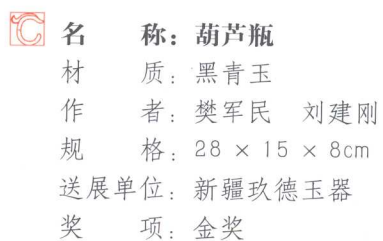 名 称：葫芦瓶
材 质：黑青玉
作 者：樊军民 刘建刚
规 格：28 × 15 × 8cm
送展单位：新疆玖德玉器
奖 项：金奖